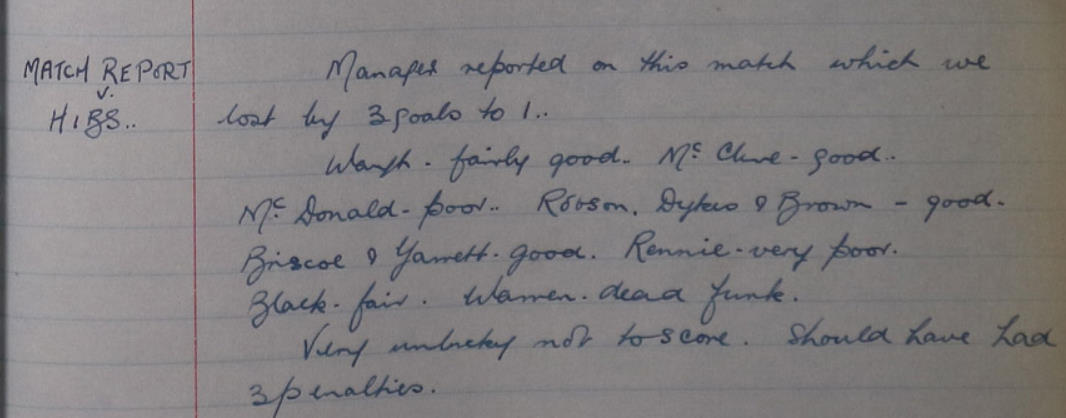 MATCH REPORT
v.
HIBS..
Manager reported on this match which we
lost by 3 goals to 1..
Waugh - fairly good. Mc Clure - good..
Mc Donald - poor.. Robson, Dykes & Brown - good.
Briscoe & Garrett - good. Rennie - very poor.
Black - fair. Warren - dead funk.
Very unlucky not to score. Should have had
3 penalties.